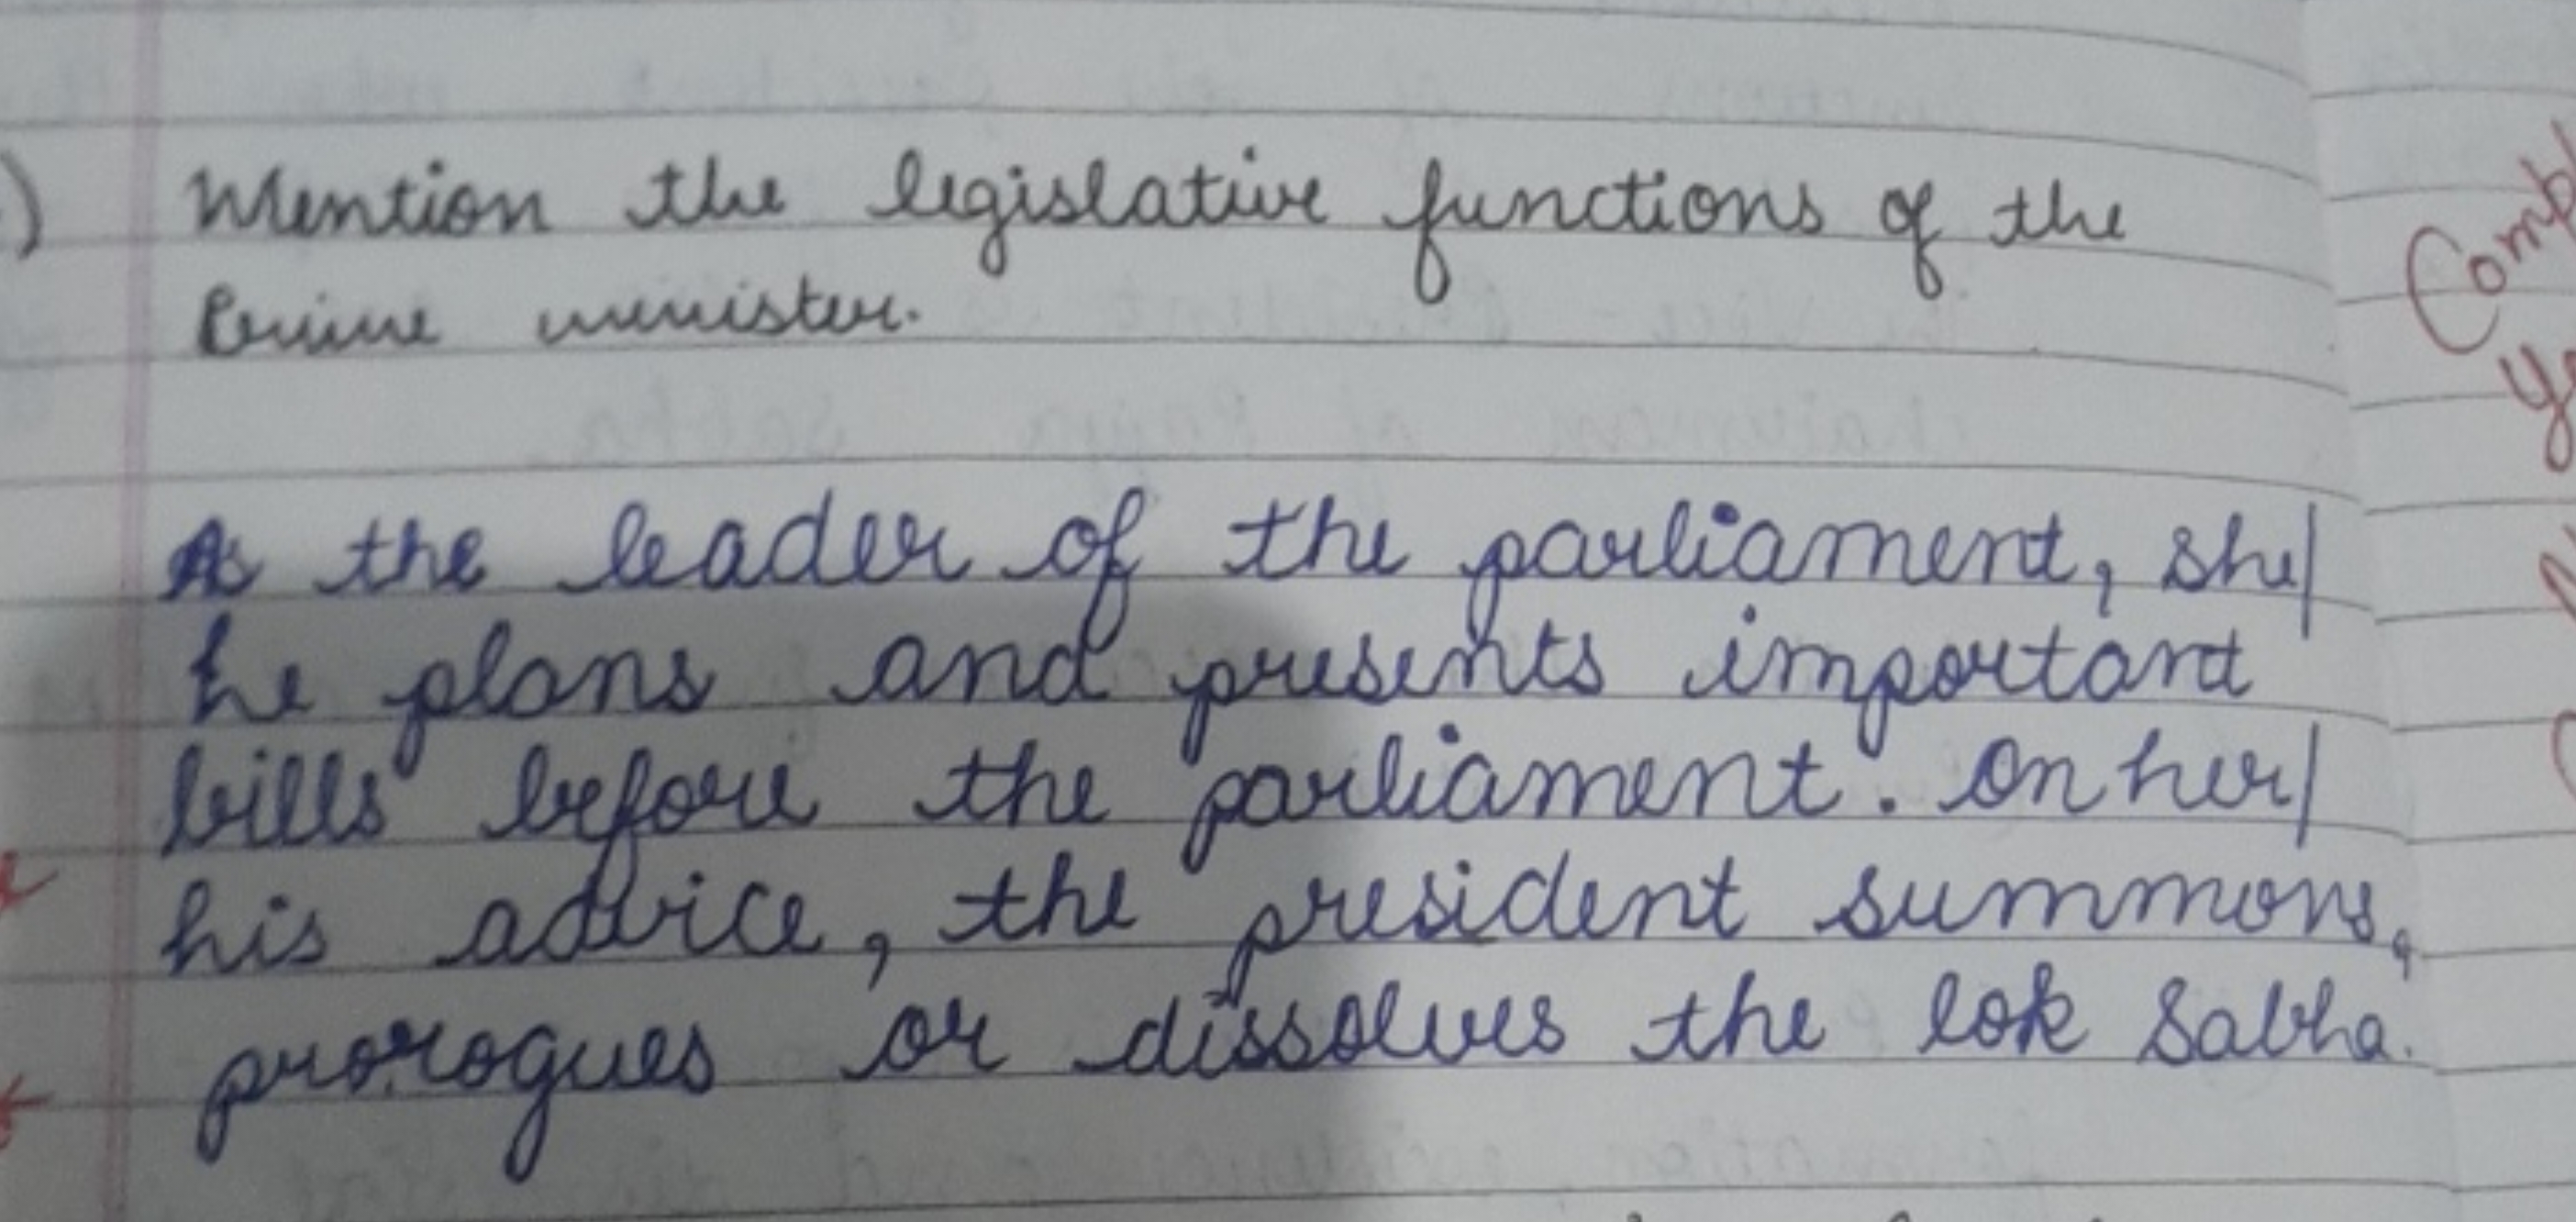 ) Mention the legislative functions of the
Prime minister.
As the leader of the parliament, she/
he plans and presents important
bills before the parliament. On her/
his advice, the president summons,
prorogues or dissolves the lok Sabha.